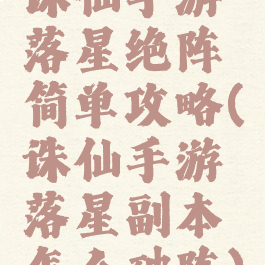 诛仙手游
落星绝阵
简单攻略(
诛仙手游
落星副本
怎么破阵)